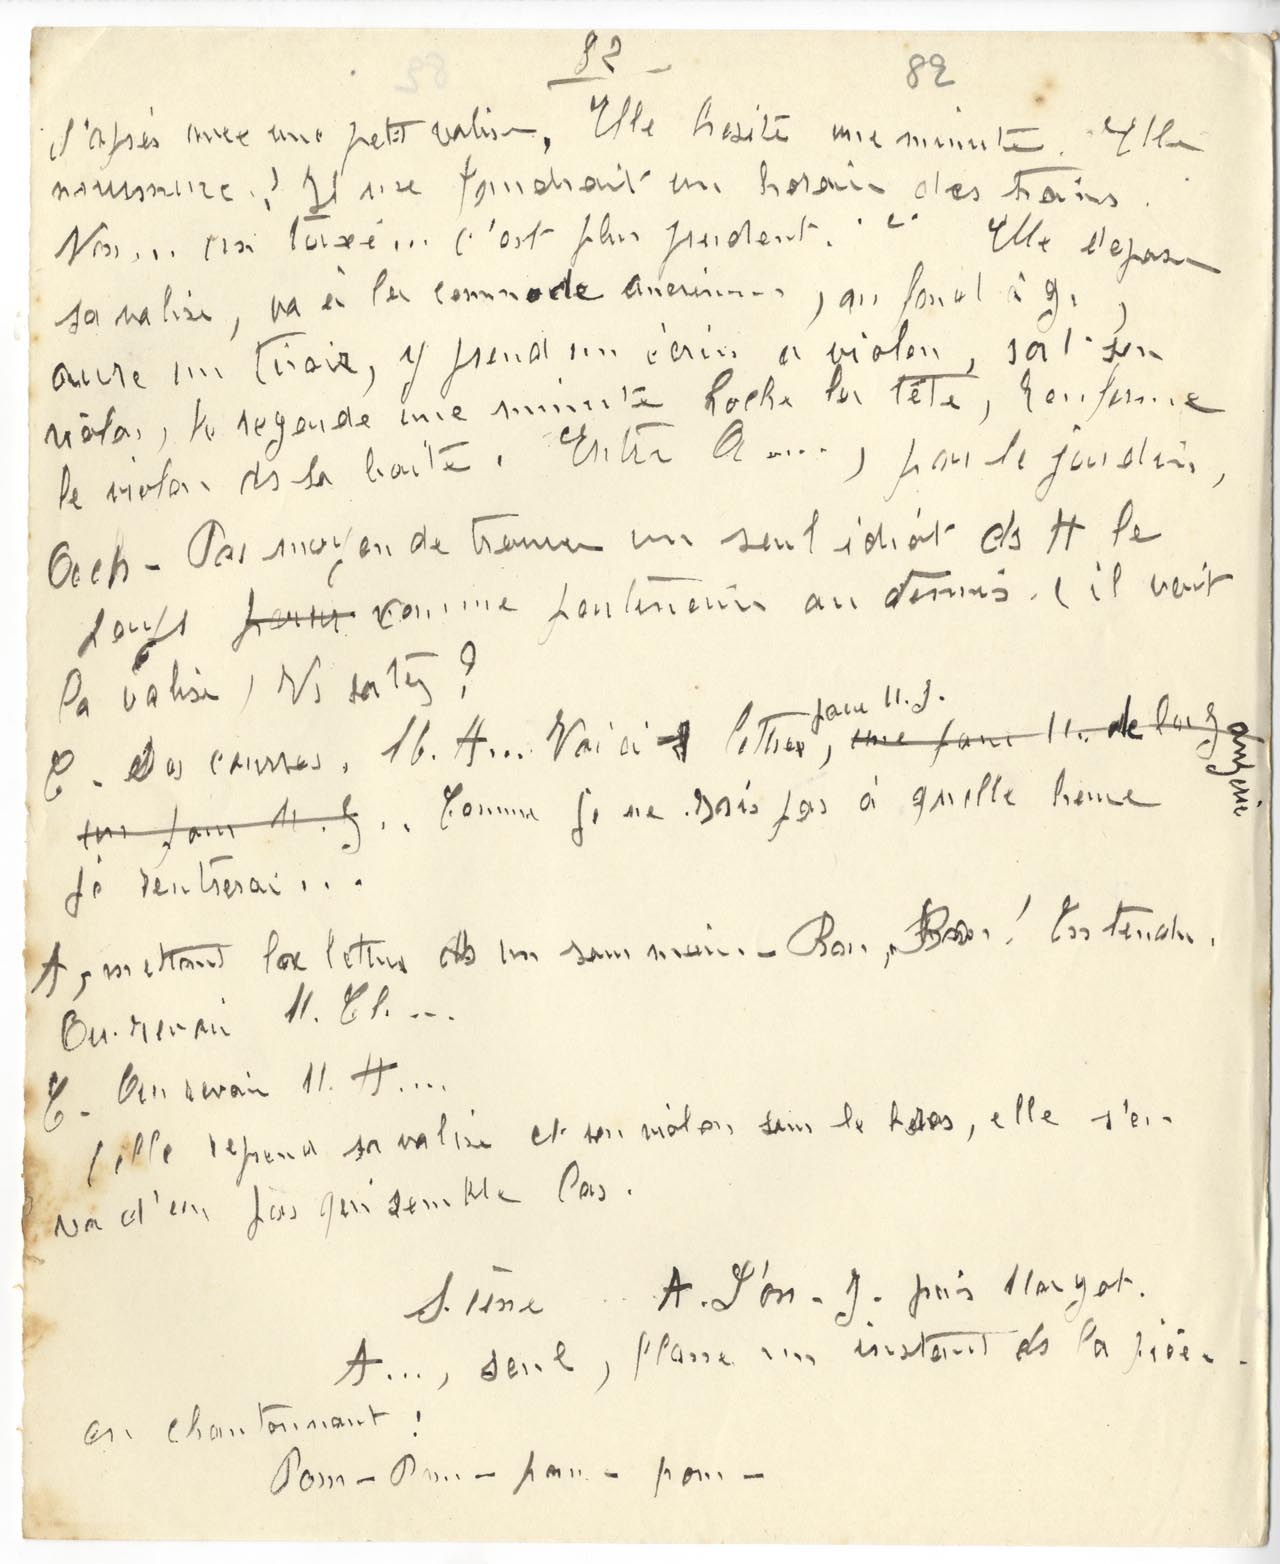 82 82
d'après avec une petit valise, Elle hesite une minute. Elle
murmure : Il me faudrait un horaire des trains.
Non... un taxi... c'est plus prudent. Elle depose
sa valise, va à la commode ancienne, au fond à g.,
ouvre un tiroir, y prend un écrin à violon, sort son
violon, le regarde une minute hoche la tête, renferme
le violon ds sa boite. Entre A...., par le jardin,
Pas moyen de trouver un seul idiot ds le
comme partenaire au tennis. (il voit
la valise) Vs sortez ?
C. Des courses, M. A... Voici lettres, pour M. J.
une pour M. de
une pour M. J... Comme je ne sais pas à quelle heure
je rentrerai...
A, mettant les lettres ds un sous main. - Bon, Bon ! Entendu.
Au revoir M. Cl....
C. Au revoir M. A....
(elle reprend sa valise et son violon sous le bras, elle s'en
va d'un pas qui semble las.
Scène A. L'on. J. puis Margot.
A..., seul, flane un instant ds la pièce
en chantonnant :
Pom - Pom - pom - pom -